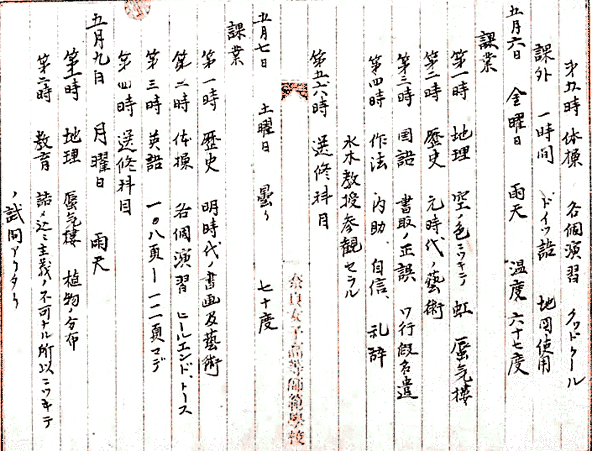 第五時 体操 各個演習 クッドゥール
課外 一時間 ドイツ語 地図使用
五月六日 金曜日 雨天 温度 六十七度
課業
第一時 地理 空ノ色ニツキテ 虹 蜃気楼
第二時 歴史 元時代ノ藝術
第三時 国語 書取ノ正誤 ワ行假名遣
第四時 作法 内助、自信、礼辞
水木教授参観セラル
第五六時 選修科目
奈良女子高等師範學校
五月七日 土曜日 曇リ 七十度
課業
第一時 歴史 明時代ノ書画及藝術
第二時 体操 各個演習 ヒールエンド、トース
第三時 英語 一〇八頁ー一一一頁マデ
第四時 選修科目
五月九日 月曜日 雨天
第一時 地理 蜃気楼 植物ノ分布
第二時 教育 詰メ込ミ主義ノ不可ナル所以ニツキテ
ノ試問アリタリ